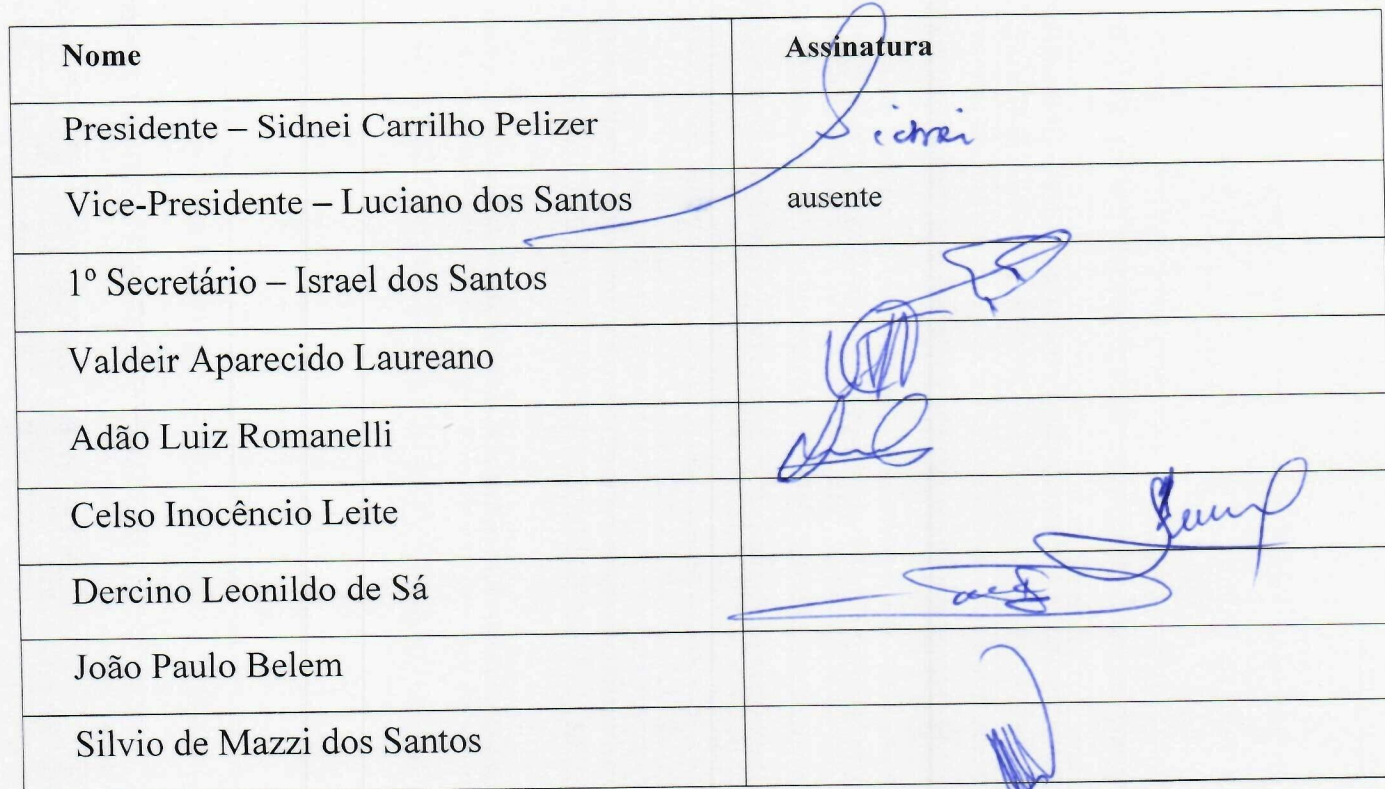 Nome Assinatura
Presidente – Sidnei Carrilho Pelizer Sidnei
Vice-Presidente – Luciano dos Santos ausente
1º Secretário – Israel dos Santos
Valdeir Aparecido Laureano
Adão Luiz Romanelli
Celso Inocêncio Leite
Dercino Leonildo de Sá
João Paulo Belem
Silvio de Mazzi dos Santos